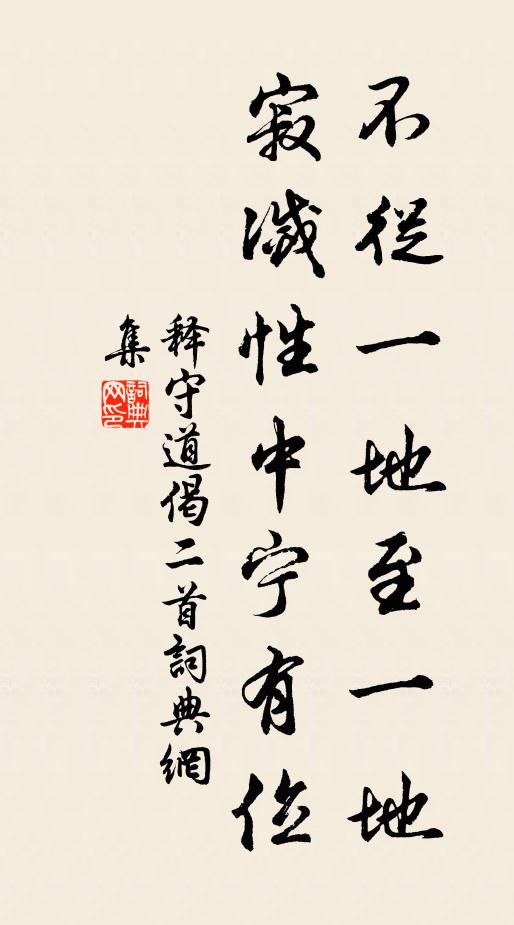 不從一地至一地
寂滅性中宁有位
释守道偈二首詞典網
集
詞典网印